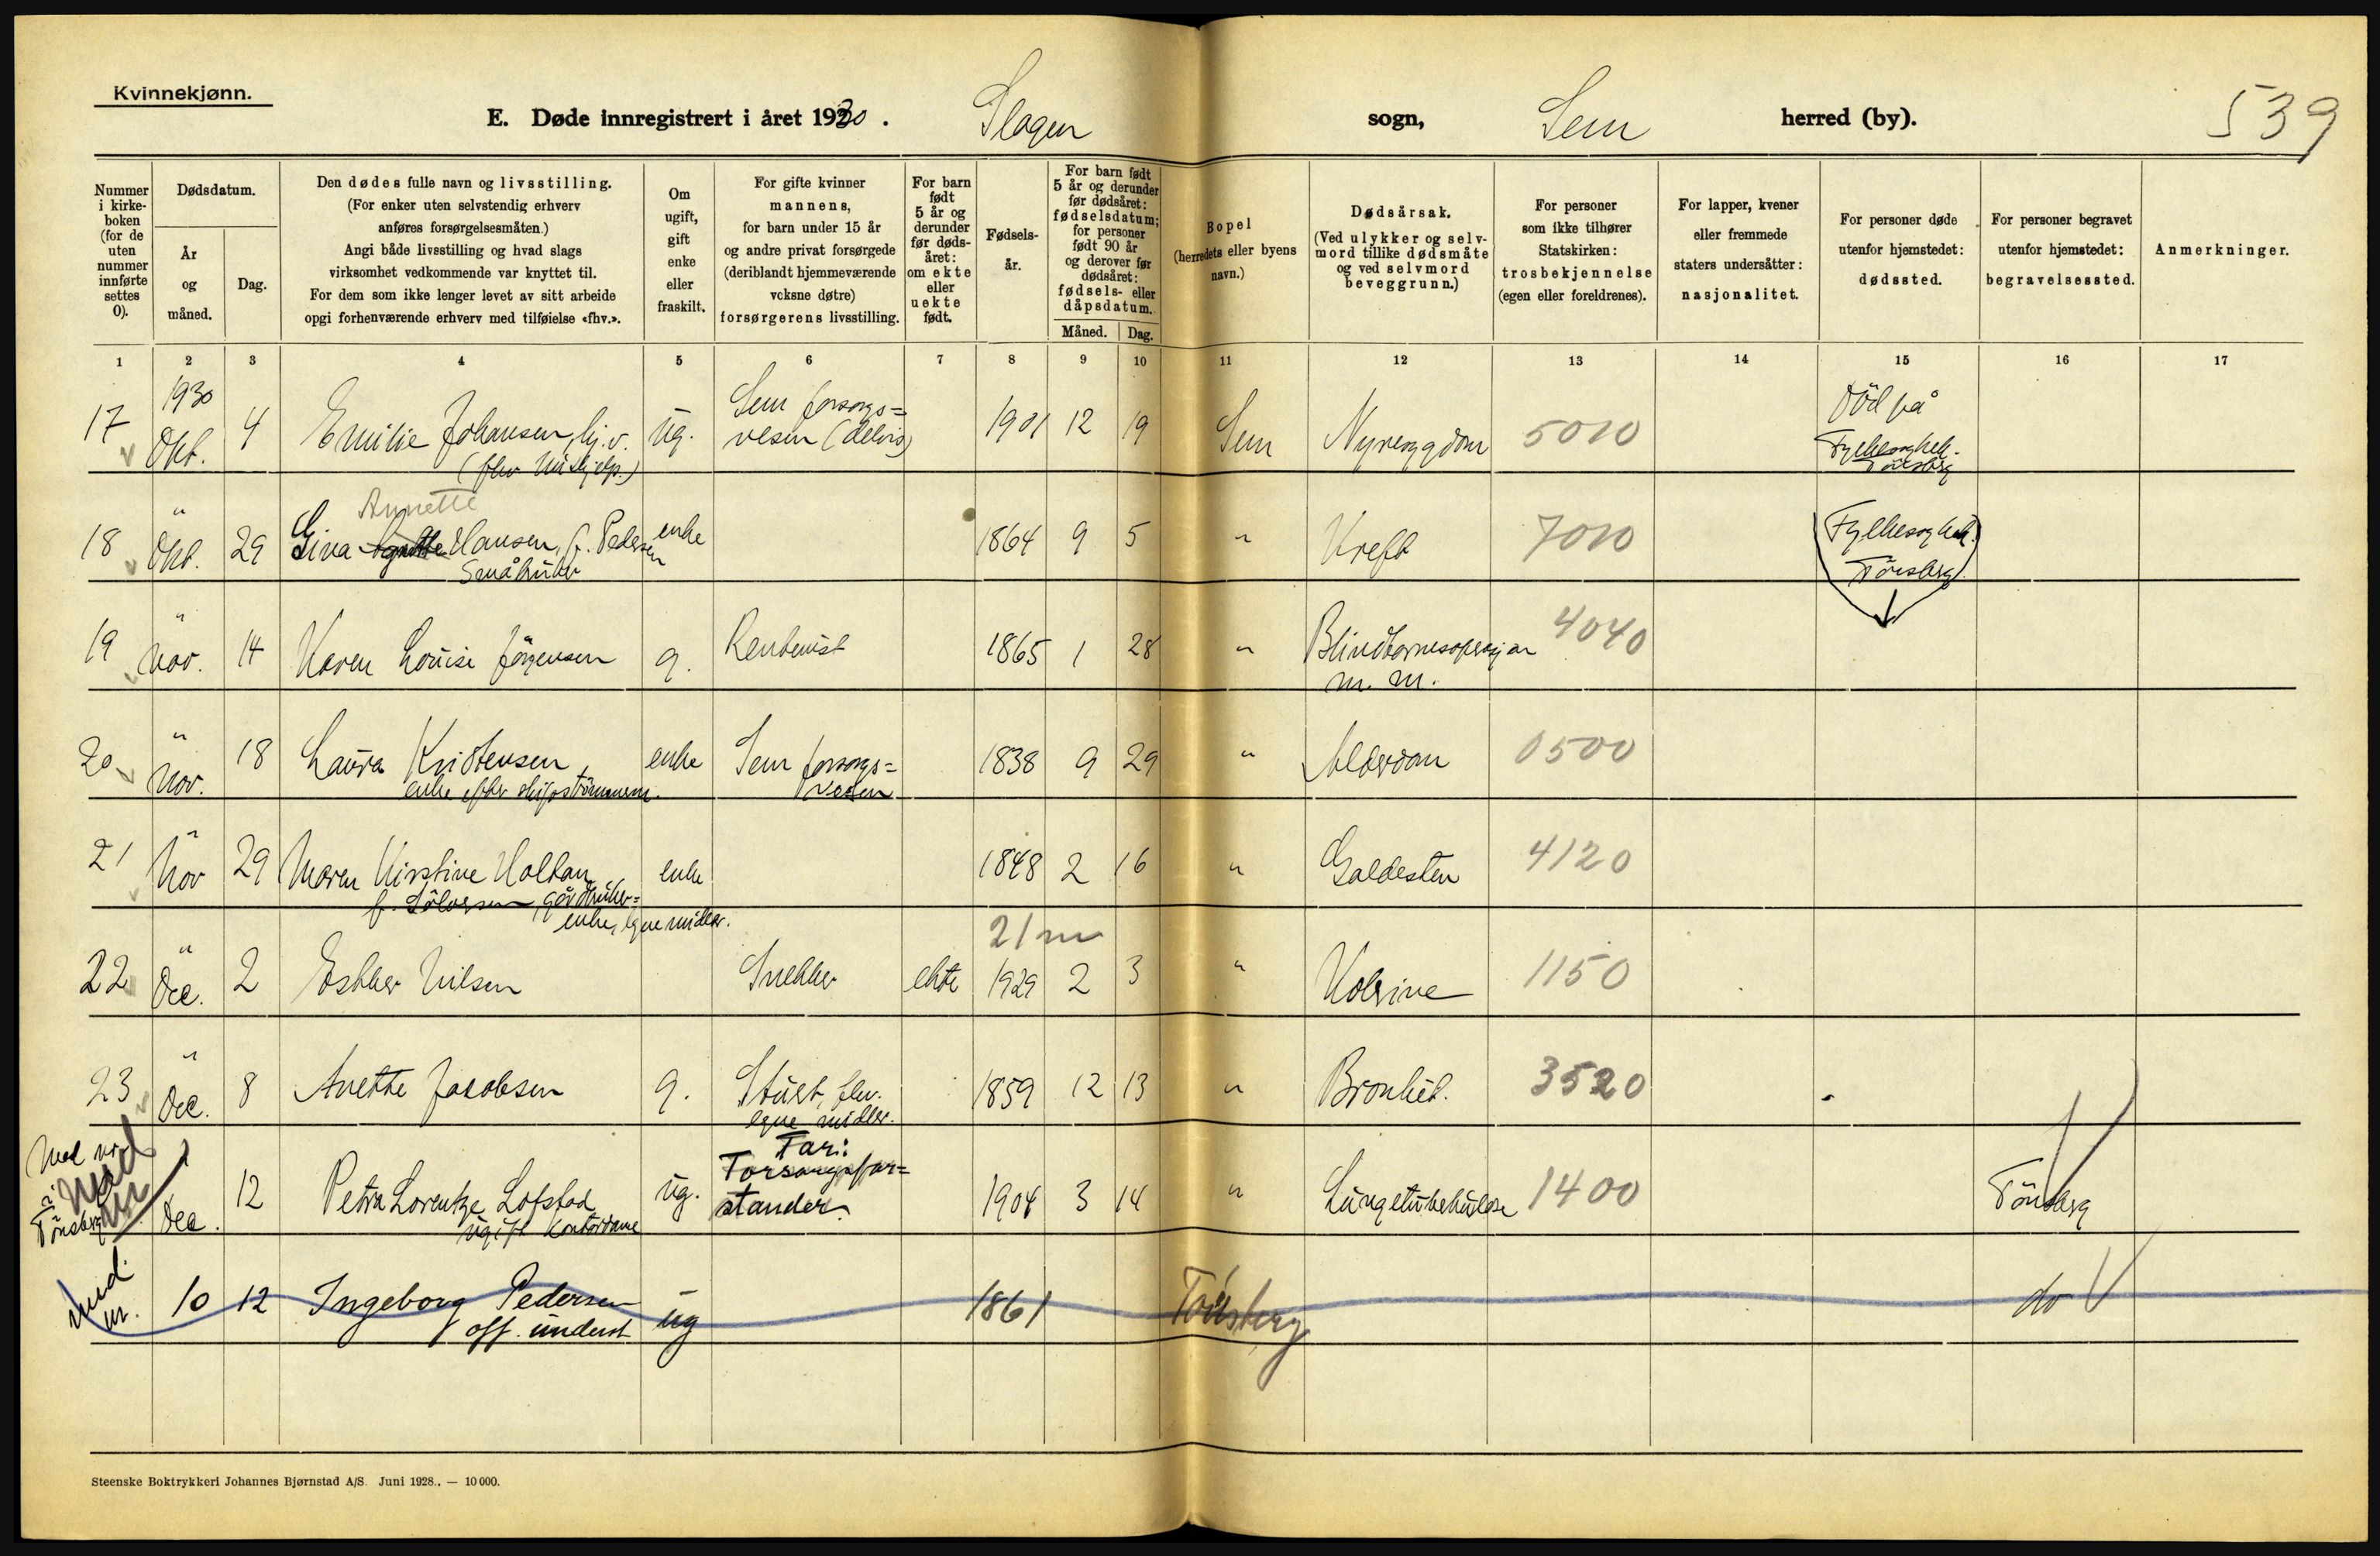 Kvinnekjønn.
E. Døde innregistrert i året 1930. Slagen sogn, Sem herred (by). 539
Nummer i kirkeboken (for de uten nummer innførte settes 0).
Dødsdatum.
År og måned.
Dag.
Den dødes fulle navn og livsstilling.
(For enker uten selvstendig erhverv
anføres forsørgelsesmåten.)
Angi både livsstilling og hvad slags
virksomhet vedkommende var knyttet til.
For dem som ikke lenger levet av sitt arbeide
opgi forhenværende erhverv med tilføielse «fhv.».
Om ugift, gift enke eller fraskilt.
For gifte kvinner
mannens,
for barn under 15 år
og andre privat forsørgede
(deriblandt hjemmeværende
voksne døtre)
forsørgerens livsstilling.
For barn født 5 år og derunder før dødsåret: om ekte eller uekte født.
Fødselsår.
For barn født
5 år og derunder
før dødsåret:
fødselsdatum;
for personer
født 90 år
og derover før
dødsåret:
fødsels- eller
dåpsdatum.
Måned. Dag.
Bopel
(herredets eller byens
navn.)
Dødsårsak.
(Ved ulykker og selvmord tillike dødsmåte
og ved selvmord
beveggrunn.)
For personer
som ikke tilhører
Statskirken:
trosbekjennelse
(egen eller foreldrenes).
For lapper, kvener
eller fremmede
staters undersåtter:
nasjonalitet.
For personer døde
utenfor hjemstedet:
dødssted.
For personer begravet
utenfor hjemstedet:
begravelsessted.
Anmerkninger.
1 2 3 4 5 6 7 8 9 10 11 12 13 14 15 16 17
17 1930 Okt. 4 Emilie Johansen, hj.v. ug. Sem forsorgs= 1901 12 19 Sem Nyresygdom 5010 Död på
(fhv. hushjelp.) vesen (delvis) Fylkessykeh. Tönsberg
Annette
18 " Okt. 29 Lina Hansen, f. Pedersen enke 1864 9 5 " Kreft 7010 Fylkessykeh.
Småbruker Tönsberg.
19 " Nov. 14 Karen Louise Jörgensen g. Rentenist 1865 1 28 " Blindtarmsoperasjon 4040
m. m.
20 " Nov. 18 Laura Kristensen enke Sem forsorgs= 1838 9 29 " Alderdom 0500
enke efter skipstömmerm. vesen
21 " Nov 29 Maren Kirstine Holtan enke 1848 2 16 " Galdesten 4120
f. gårdbruker=
enke, egne midler.
21 m
22 " Dec. 2 Esther Nilsen Snekker ekte 1929 2 3 " Kolerine 1150
23 " Dec. 8 Anette Jacobsen g. Stuert, fhv. 1859 12 13 " Bronkit. 3520
egne midler.
Med nr. i Tönsberg
Med nr
" Dec. 12 Petra Lorentze Lofstad ug. Far: Forsorgsfor= 1904 3 14 " Lungetuberkulose 1400 Tönsberg
ugift kontordame stander.
Med. nr. 10 12 Ingeborg Pedersen ug 1861 Tönsberg do
off. underst
Steenske Boktrykkeri Johannes Bjørnstad A/S. Juni 1928.. — 10 000.